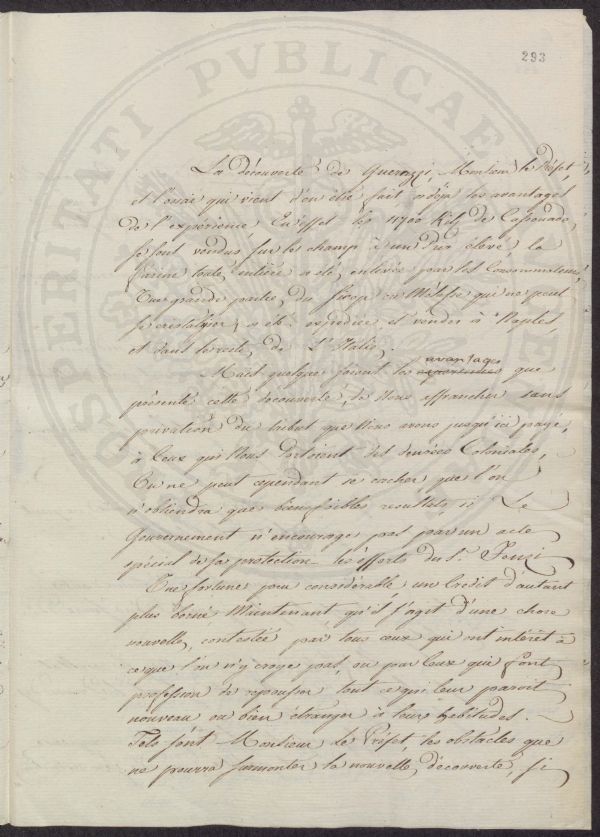 293
La découverte de Guerazzi, Monsieur le Préfet,
et l'essai qui vient d'en être fait a déja les avantages
de l'expérience. En effet les 11700 Kil. de Cassonade
se sont vendus sur le champ à un Prix élevé, la
farine toute entière a été enlevée par les Consommateurs,
Une grande partie du sirop ou Melasse qui ne peut
se cristaliser, a été expediée et vendue à Naples
et dans le reste de l'Italie.
Mais quelques soient les avantages que
présente cette decouverte, de Nous affranchir sans
privation du tribut que Nous avons jusqu'ici payé,
à Ceux qui Nous Portoient des denrées Coloniales,
On ne peut cependant se cacher que l'on
n'obtiendra que bien foibles resultats si Le
Gouvernement n'encourage pas par un acte
spécial de sa protection les éfforts du Sr. Fenzi
Une fortune peu considérable, un Credit d'autant
plus borné Maintenant qu'il s'agit d'une chose
nouvelle, contestée par tous ceux qui ont intérêt à
ce que l'on n'y croye pas, ou par Ceux qui font
profession de repousser tout ce qui leur paroit
nouveau ou bien étranger à leurs habitudes.
Tels sont Monsieur le Préfet, les obstacles que
ne pourra surmonter la nouvelle découverte, si
PROSPERITATI PVBLICAE